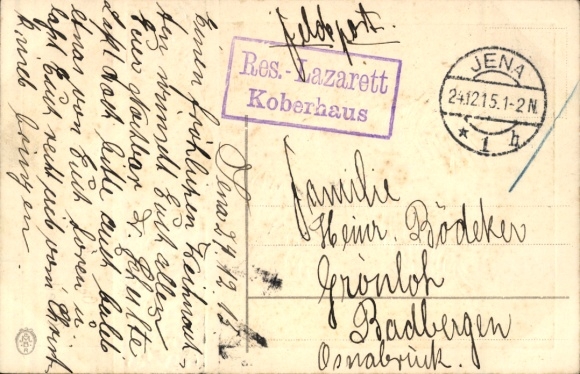 Feldpost.
Res.-Lazarett
Koberhaus
JENA
24.12.15.1-2N.
* 1 h
Familie
Heinr. Bödeker
Grönloh
Badbergen
Osnabrück.
Jena 24.12.15.
Einen fröhlichen Weihnach-
ten wünscht Euch allen
Euer Nachbar H. Schulte
Laßt doch bitte auch bald
etwas von Euch hören u.
laßt Euch recht viel vom Christ-
kind bringen.